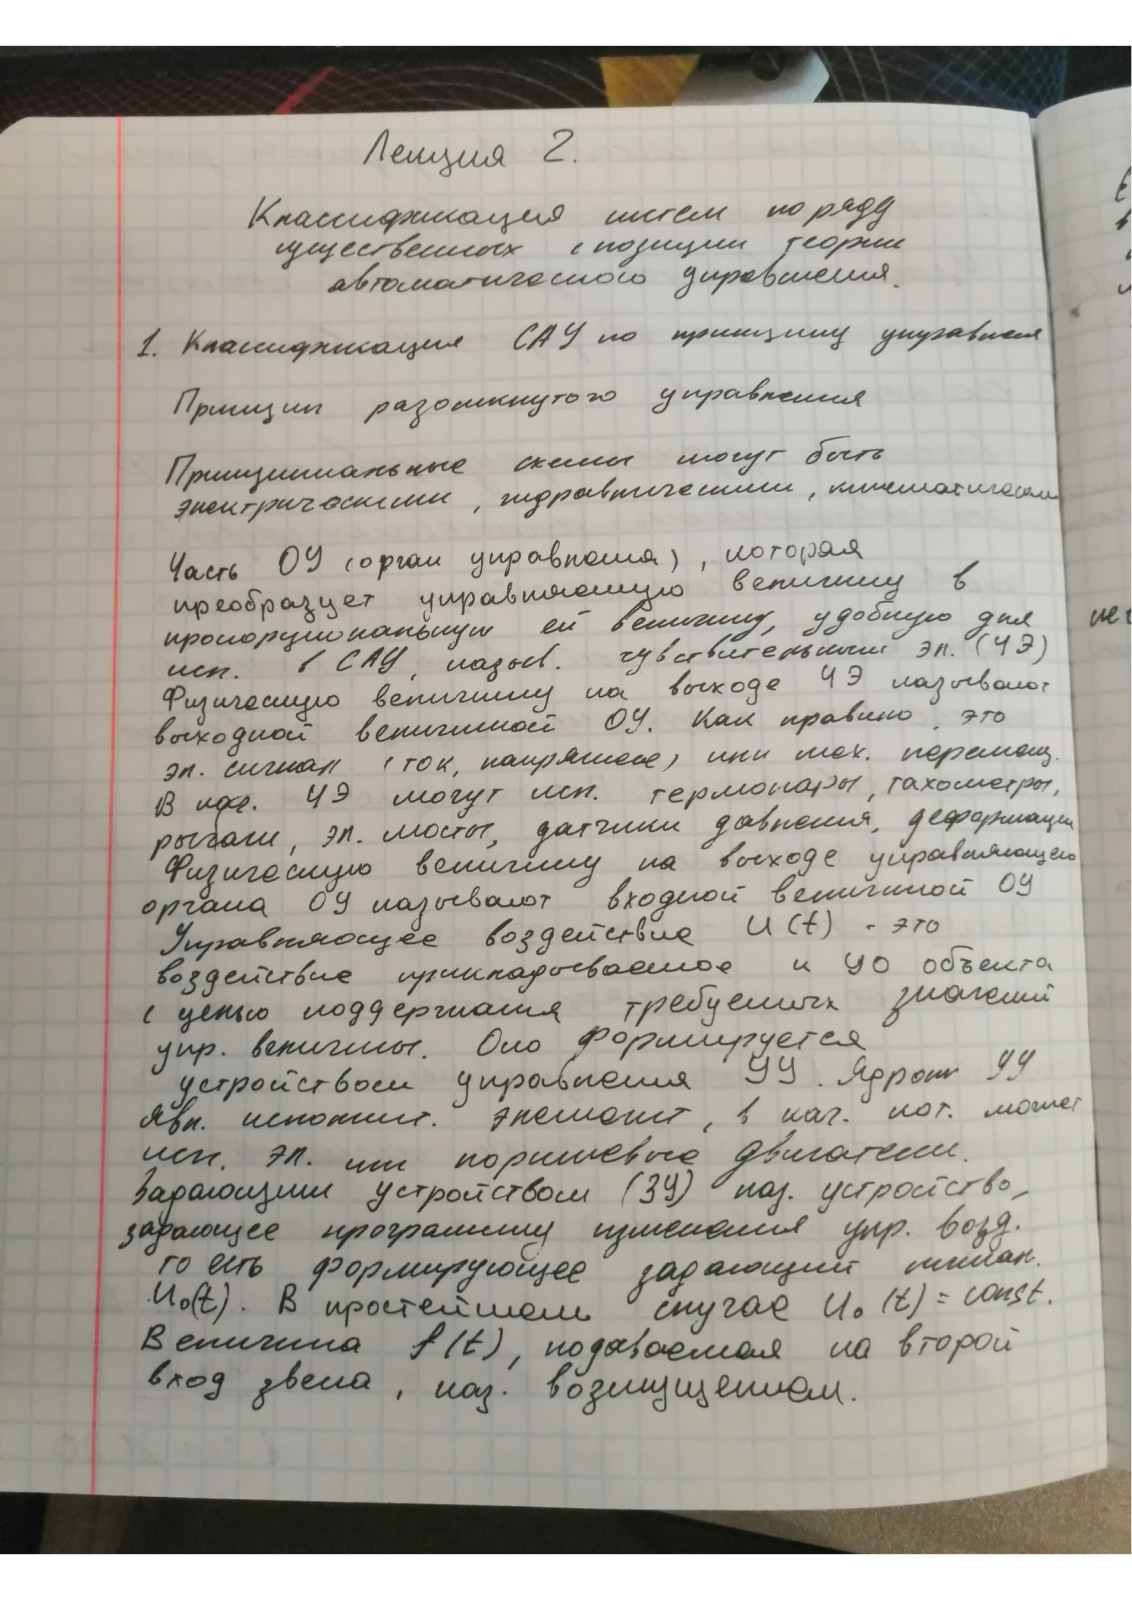 Лекция 2.
Классификация систем по ряду
существенных с позиции теории
автоматического управления.
1. Классификация САУ по принципу управления
Принцип разомкнутого управления
Принципиальные схемы могут быть
электрическими, гидравлическими, кинематическими
Часть ОУ (орган управления), которая
преобразует управляемую величину в
пропорциональную ей величину, удобную для
исп. в САУ, назыв. чувствительным эл. (ЧЭ)
Физическую величину на выходе ЧЭ называют
выходной величиной ОУ. Как правило, это
эл. сигнал (ток, напряжение) или мех. перемещ.
В кач. ЧЭ могут исп. термопары, тахометры,
рычаги, эл. мосты, датчики давления, деформации
Физическую величину на выходе управляющего
органа ОУ называют входной величиной ОУ
Управляющее воздействие U(t) - это
воздействие прикладываемое к УО объекта
с целью поддержания требуемых значений
упр. величины. Оно формируется
устройством управления УУ. Ядром УУ
явл. исполнит. элемент, в кач. кот. может
исп. эл. или поршневые двигатели.
Задающим устройством (ЗУ) наз. устройство,
задающее программу изменения упр. возд.
то есть формирующее задающий сигнал.
U₀(t). В простейшем случае U₀(t) = const.
Величина f(t), подаваемая на второй
вход звена, наз. возмущением.